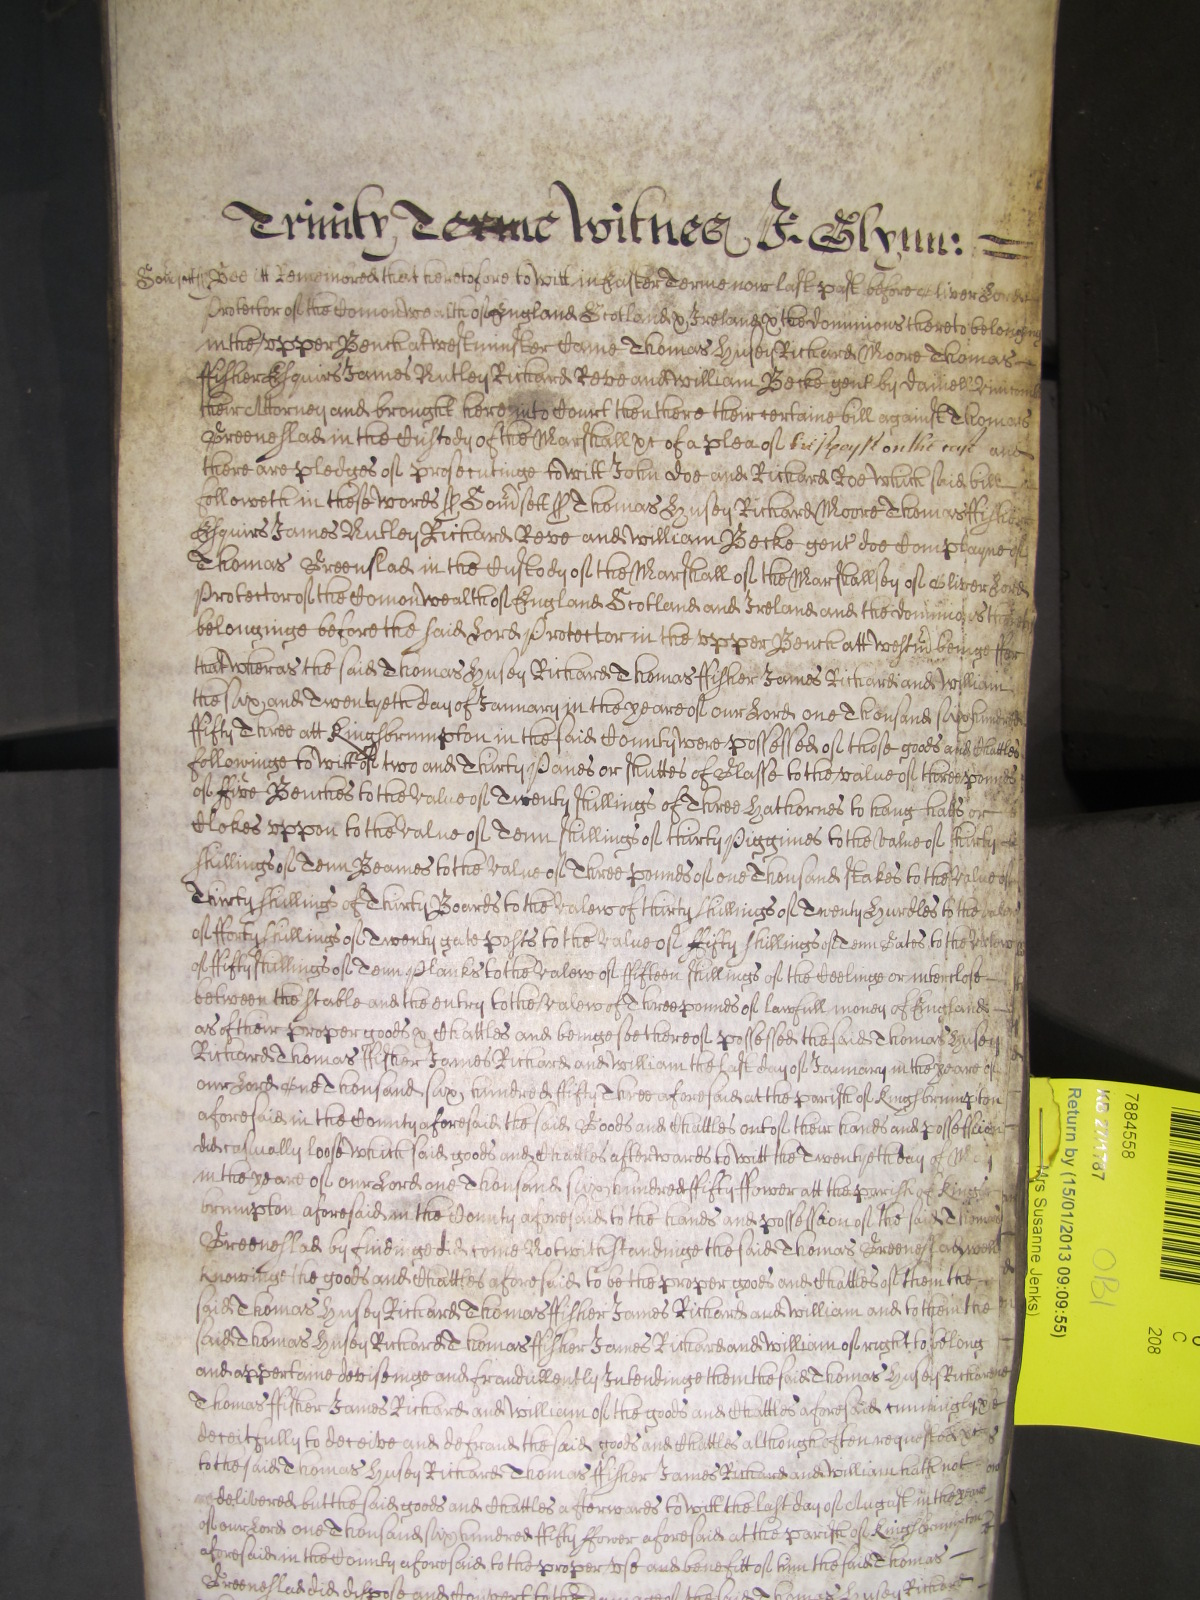 Trinity Terme Witnes J. Glynn:
Somsett ss Bee itt Rememored that heretofore to witt in Easter Terme now last past before Oliver Lord
Protector of the Comonwealth of England Scotland & Ireland & the dominions thereto belonging
in the vpper Bench at westminster Came Thomas Husey Richard Moore Thomas
ffisher Esquirs James Nutley Richard Reve and William Becke gent by Daniell
their Attorney and brought here into Court then there their certaine bill against Thomas
Greeneslad in the Custody of the Marshall &c of a plea of trespasse on the case and
there are pledges of prosecutinge to witt John Doe and Richard Roe which said bill
followeth in these words ss Somsett ss Thomas Husey Richard Moore Thomas ffisher
Esquirs James Nutley Richard Reve and William Becke gent doe Complayne of
Thomas Greenslad in the Custody of the Marshall of the Marshallsey of Oliver Lord
Protector of the Comonwealth of England Scotland and Ireland and the dominions thereto
belonginge before the said Lord Protector in the vpper Bench att westm beinge ffor
that wheras the said Thomas Husey Richard Thomas ffisher James Richard and William
the six and Twentyeth day of January in the yeare of our Lord one Thousand six hundred
ffifty Three att Kingsbrumpton in the said County were possessed of those goods and Chattles
followinge to witt of two and Thirty Panes or shuttes of Glasse to the value of three pounds
of ffive Benches to the value of Twenty shillings of Three Hathornes to hang hatts or
Clokes vppon to the value of Tenn shillings of thirty Piggines to the value of thirty
shillings of Tenn Beames to the value of Three pounds of one Thousand stakes to the value of
Thirty shillings of Thirty Boards to the valew of thirty shillings of Twenty Hurdles to the valew
of fforty shillings of Twenty gate posts to the value of ffifty shillings of Tenn Gates to the valew
of ffifty shillings of Tenn Planks to the valew of ffifteen shillings of the Ceelinge or interclose
betweene the stable and the entry to the valew of Three pounds of lawfull money of England
as of their proper goods & Chattles and beinge soe thereof possessed the said Thomas Husey
Richard Thomas ffisher James Richard and William the last day of January in the yeare of
our Lord one Thousand six hundred ffifty Three aforesaid at the parish of Kingsbrumpton
aforesaid in the County aforesaid the said Goods and Chattles out of their hands and possession
did casually loose which said goods and Chattles afterwards to witt the Twentyeth day of May
in the yeare of our Lord one Thousand six hundred ffifty ffower att the parish of Kings
brumpton aforesaid in the County aforesaid to the hands and possession of the said Thomas
Greeneslad by findinge did come Notwithstandinge the said Thomas Greeneslad well
knowinge the goods and Chattles aforesaid to be the proper goods and Chattles of them the
said Thomas Husey Richard Thomas ffisher James Richard and William and to them the
said Thomas Husey Richard Thomas ffisher James Richard and William of right to belong
and appertaine deviseinge and fraudullently Intendinge them the said Thomas Husey Richard
Thomas ffisher James Richard and William of the goods and Chattles aforesaid cunningly &
deceitfully to deceive and defraud the said goods and Chattles although often requested &c
to the said Thomas Husey Richard Thomas ffisher James Richard and William hath not
delivered but the said goods and Chattles afterwards to witt the last day of August in the yeare
of our Lord one Thousand six hundred ffifty ffower aforesaid at the parish of Kingsbrumpton
aforesaid in the County aforesaid to the proper vse and benefitt of him the said Thomas
Greeneslad did dispose and Convert to the damage of the said Thomas Husey Richard
7884558
KB 27/1787
Return by (15/01/2013 09:09:55)
Mrs Susanne Jenks)
OBI
C
208